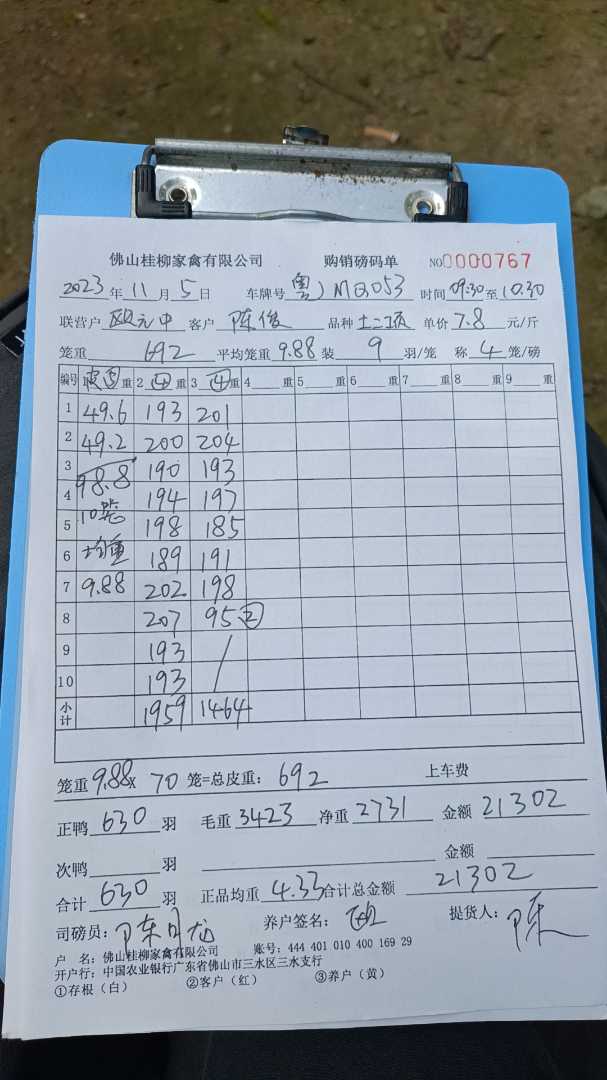 佛山桂柳家禽有限公司 购销磅码单 NO0000767
2023年11月5日 车牌号 粤JMQ053 时间09:30至10:30
联营户 欧元中 客户 陈俊 品种 土二 单价7.8元/斤
笼重692平均笼重9.88装9羽/笼 称4笼/磅
编号 重 2 ④重 3 ④重 4 重 5 重 6 重 7 重 8 重 9 重
1 49.6 193 201
2 49.2 200 204
3 98.8 190 193
4 10笼 194 197
5 198 185
6 均重 189 191
7 9.88 202 198
8 207 95②
9 193 /
10 193
小计 1959 1464
笼重9.88x 70笼=总皮重:692 上车费
正鸭630羽 毛重3423净重2731 金额21302
次鸭 羽 金额
合计630羽 正品均重4.33合计总金额21302
司磅员:陈 养户签名:欧 提货人:陈
户 名:佛山桂柳家禽有限公司 账号:444 401 010 400 169 29
开户行:中国农业银行广东省佛山市三水区三水支行
①存根(白) ②客户(红) ③养户(黄)